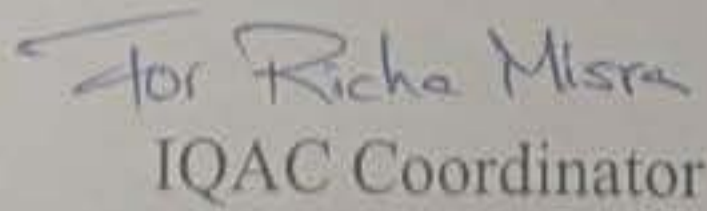 For Richa Misra
IQAC Coordinator